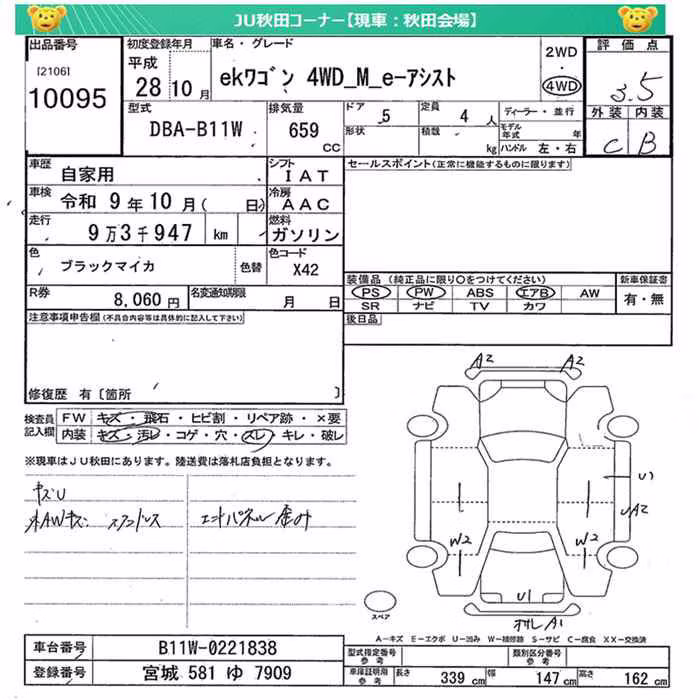 JU秋田コーナー【現車：秋田会場】
出品番号 初度登録年月 車名・グレード 2WD ・ 4WD 評価点
[2106] 10095 平成 28年10月 ekワゴン 4WD_M_e-アシスト 3.5
型式 排気量 ドア 5 定員 4人 ディーラー・並行 外装 内装
DBA-B11W 659 CC 形状 積載 kg モデル年式 年 ハンドル 左・右 C B
車歴 自家用 シフト IAT セールスポイント(正常に機能するものに限ります)
車検 令和 9年10月( 日) 冷房 AAC
走行 9万3千947 km 燃料 ガソリン
色 ブラックマイカ 色替 色コード X42
装備品(純正品に限り○をつけてください) 新車保証書
R券 8,060円 名変通知期限 月 日
PS PW ABS エアB AW 有・無
SR ナビ TV カワ
注意事項申告欄(不具合内容等は具体的に記入して下さい) 後日品
修復歴 有〔箇所 〕
検査員記入欄 FW キズ・飛石・ヒビ割・リペア跡・×要
内装 キズ・汚レ・コゲ・穴・スレ・キレ・破レ
※現車はJU秋田にあります。陸送費は落札店負担となります。
キズU
AWキズ エンドパネル歪み
A2 A2
U1
UA2
W2 W2
U1
A1
スペア
A―キズ E―エクボ U―凹み W―補修跡 S―サビ C―腐食 XX―交換済
車台番号 B11W-0221838 型式指定番号 参考 類別区分番号 参考
登録番号 宮城 581 ゆ 7909 車庫証明用 参考 長さ 339 cm 幅 147 cm 高さ 162 cm